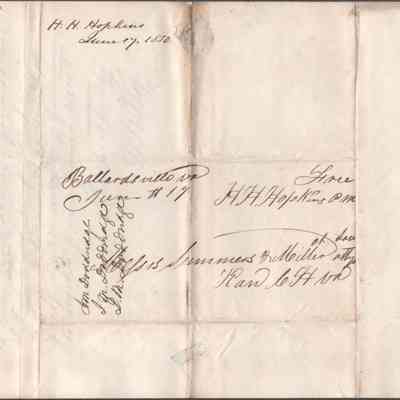 H. H. Hopkins
June 17, 1850
Ballardsville va
June # 17
Free
H H Hopkins P M
Messrs Summers & Miller
at law
Kan C H va